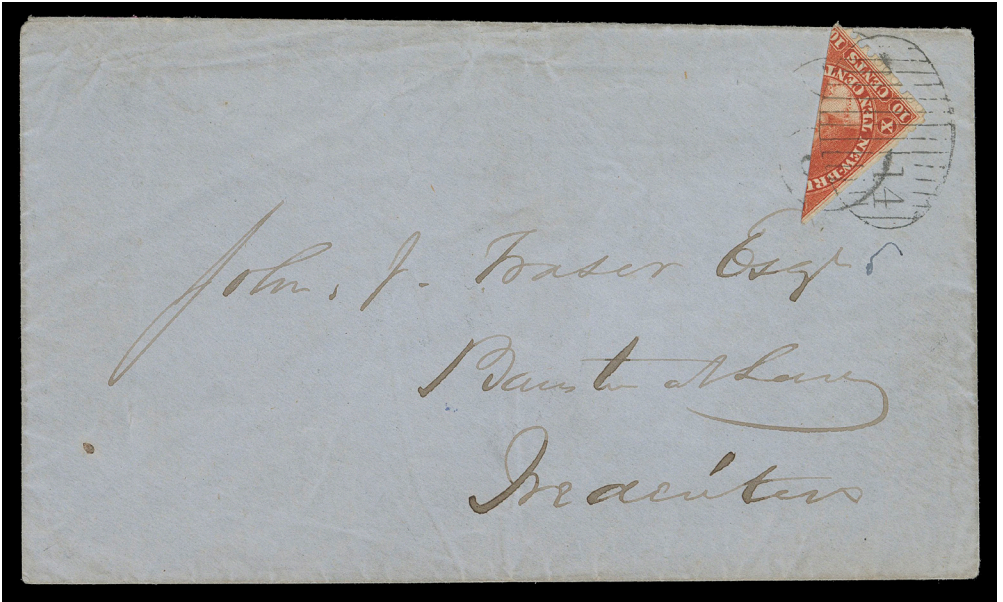 10
CENTS
10
TEN CENT
X
NEW-BRU
14
John, J. Fraser Esqr
Barrister at Law
Fredericton